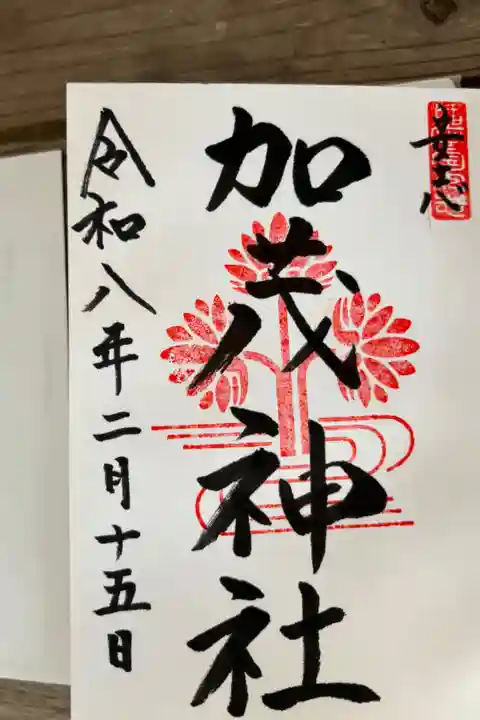 加茂神社
令和八年二月十五日